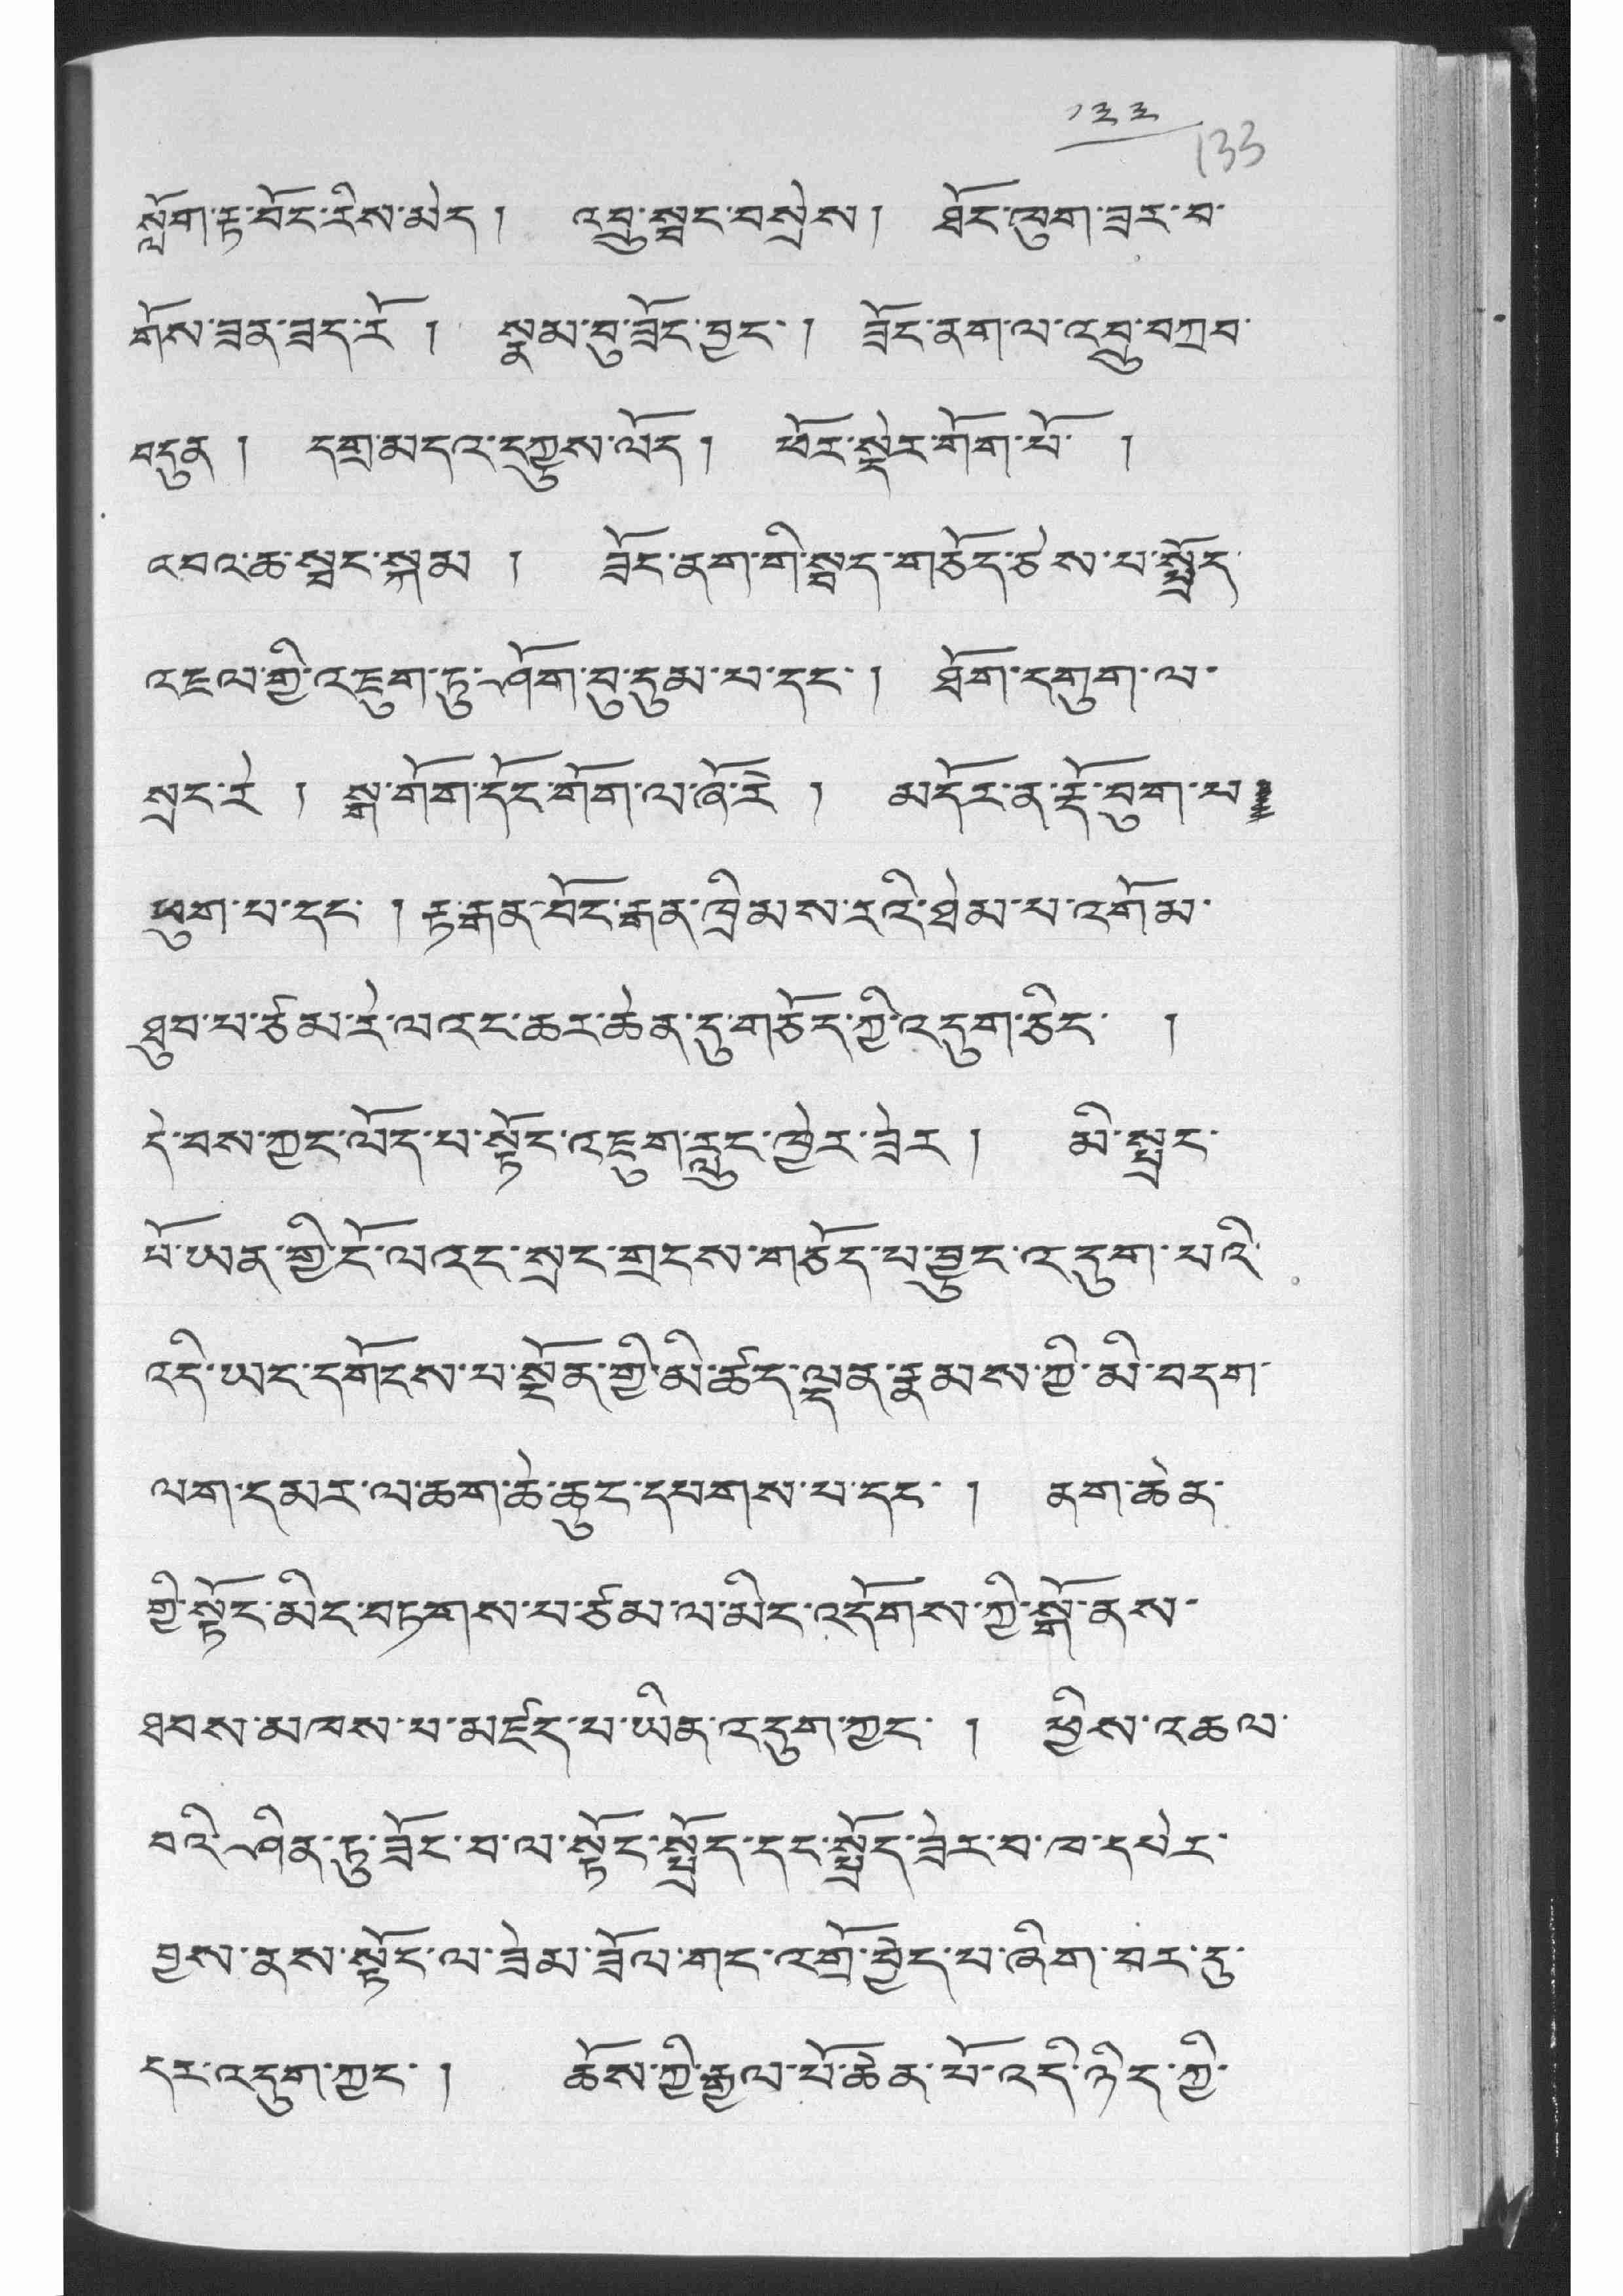 ༡༣༣
133
སློག་རྟ་བོང་རིས་མེད། འབྲུ་སྦྲང་བསྲེས། ཐོང་ཁུག་ཟར་བ་
གོས་ཟན་ཟད་རོ། སྣམ་བུ་ཟོང་བྱང་། ཟོང་ནག་ལ་འབྲུ་བཀྲབ་
བདུན། དགྲ་མདའ་དཀྱུས་ལོད། ཕོར་སྡེར་གོག་པོ།
འབའ་ཆ་སྦང་སྐམ། ཟོང་ནག་གི་སྦད་གཅོད་ཅེས་པ་སྤྲོད་
འཇལ་གྱི་འཇུག་ཏུ་ཤོག་བུ་དུམ་པ་དང་། ཐོག་དགུག་ལ་
སྲང་རེ། སྒ་གོག་དོང་གོག་ལ་ཞོ་རེ། མདོར་ན་རྡོ་བུག་པ་
ཕུག་པ་དང་། རྟ་རྒན་བོང་རྒན་ཁྲིམས་རའི་ཐེམ་པ་འགོམ་
ཐུབ་པ་ཙམ་རེ་ལའང་ཆར་ཆེན་དུ་གཅོད་ཀྱི་འདུག་ཅིང་།
དེ་བས་ཀྱང་ལོད་པ་སྟོང་འཇུག་རླུང་ཁྱེར་ཟེར། མི་སྤྲང་
པོ་ཡན་གྱི་ངོ་ལའང་སྲང་གྲངས་གཅོད་པ་བྱུང་འདུག་པའི་
འདི་ཡང་དགོངས་པ་སྔོན་གྱི་མི་ཚད་ལྡན་རྣམས་ཀྱི་མི་བདག་
ལག་དམར་ལ་ཆག་ཆེ་ཆུང་དཔགས་པ་དང་། ནག་ཆེན་
གྱི་སྟོང་མིང་བཏགས་པ་ཙམ་ལ་མིང་འདོགས་ཀྱི་སྒོ་ནས་
ཐབས་མཁས་པ་མཛད་པ་ཡིན་འདུག་ཀྱང་། ཕྱིས་འཆལ་
བའི་ཤིན་ཏུ་ཟོང་བ་ལ་སྟོང་སྤྲོད་དང་སྤྲོད་ཟེར་བ་ཁ་དཔེར་
བྱས་ནས་སྟོང་ལ་ཟེམ་ཟོལ་གང་འགྲོ་བྱེད་པ་ཞིག་བར་དུ་
དར་འདུག་ཀྱང་། ཆོས་ཀྱི་རྒྱལ་པོ་ཆེན་པོ་འདི་ཉིད་ཀྱི་